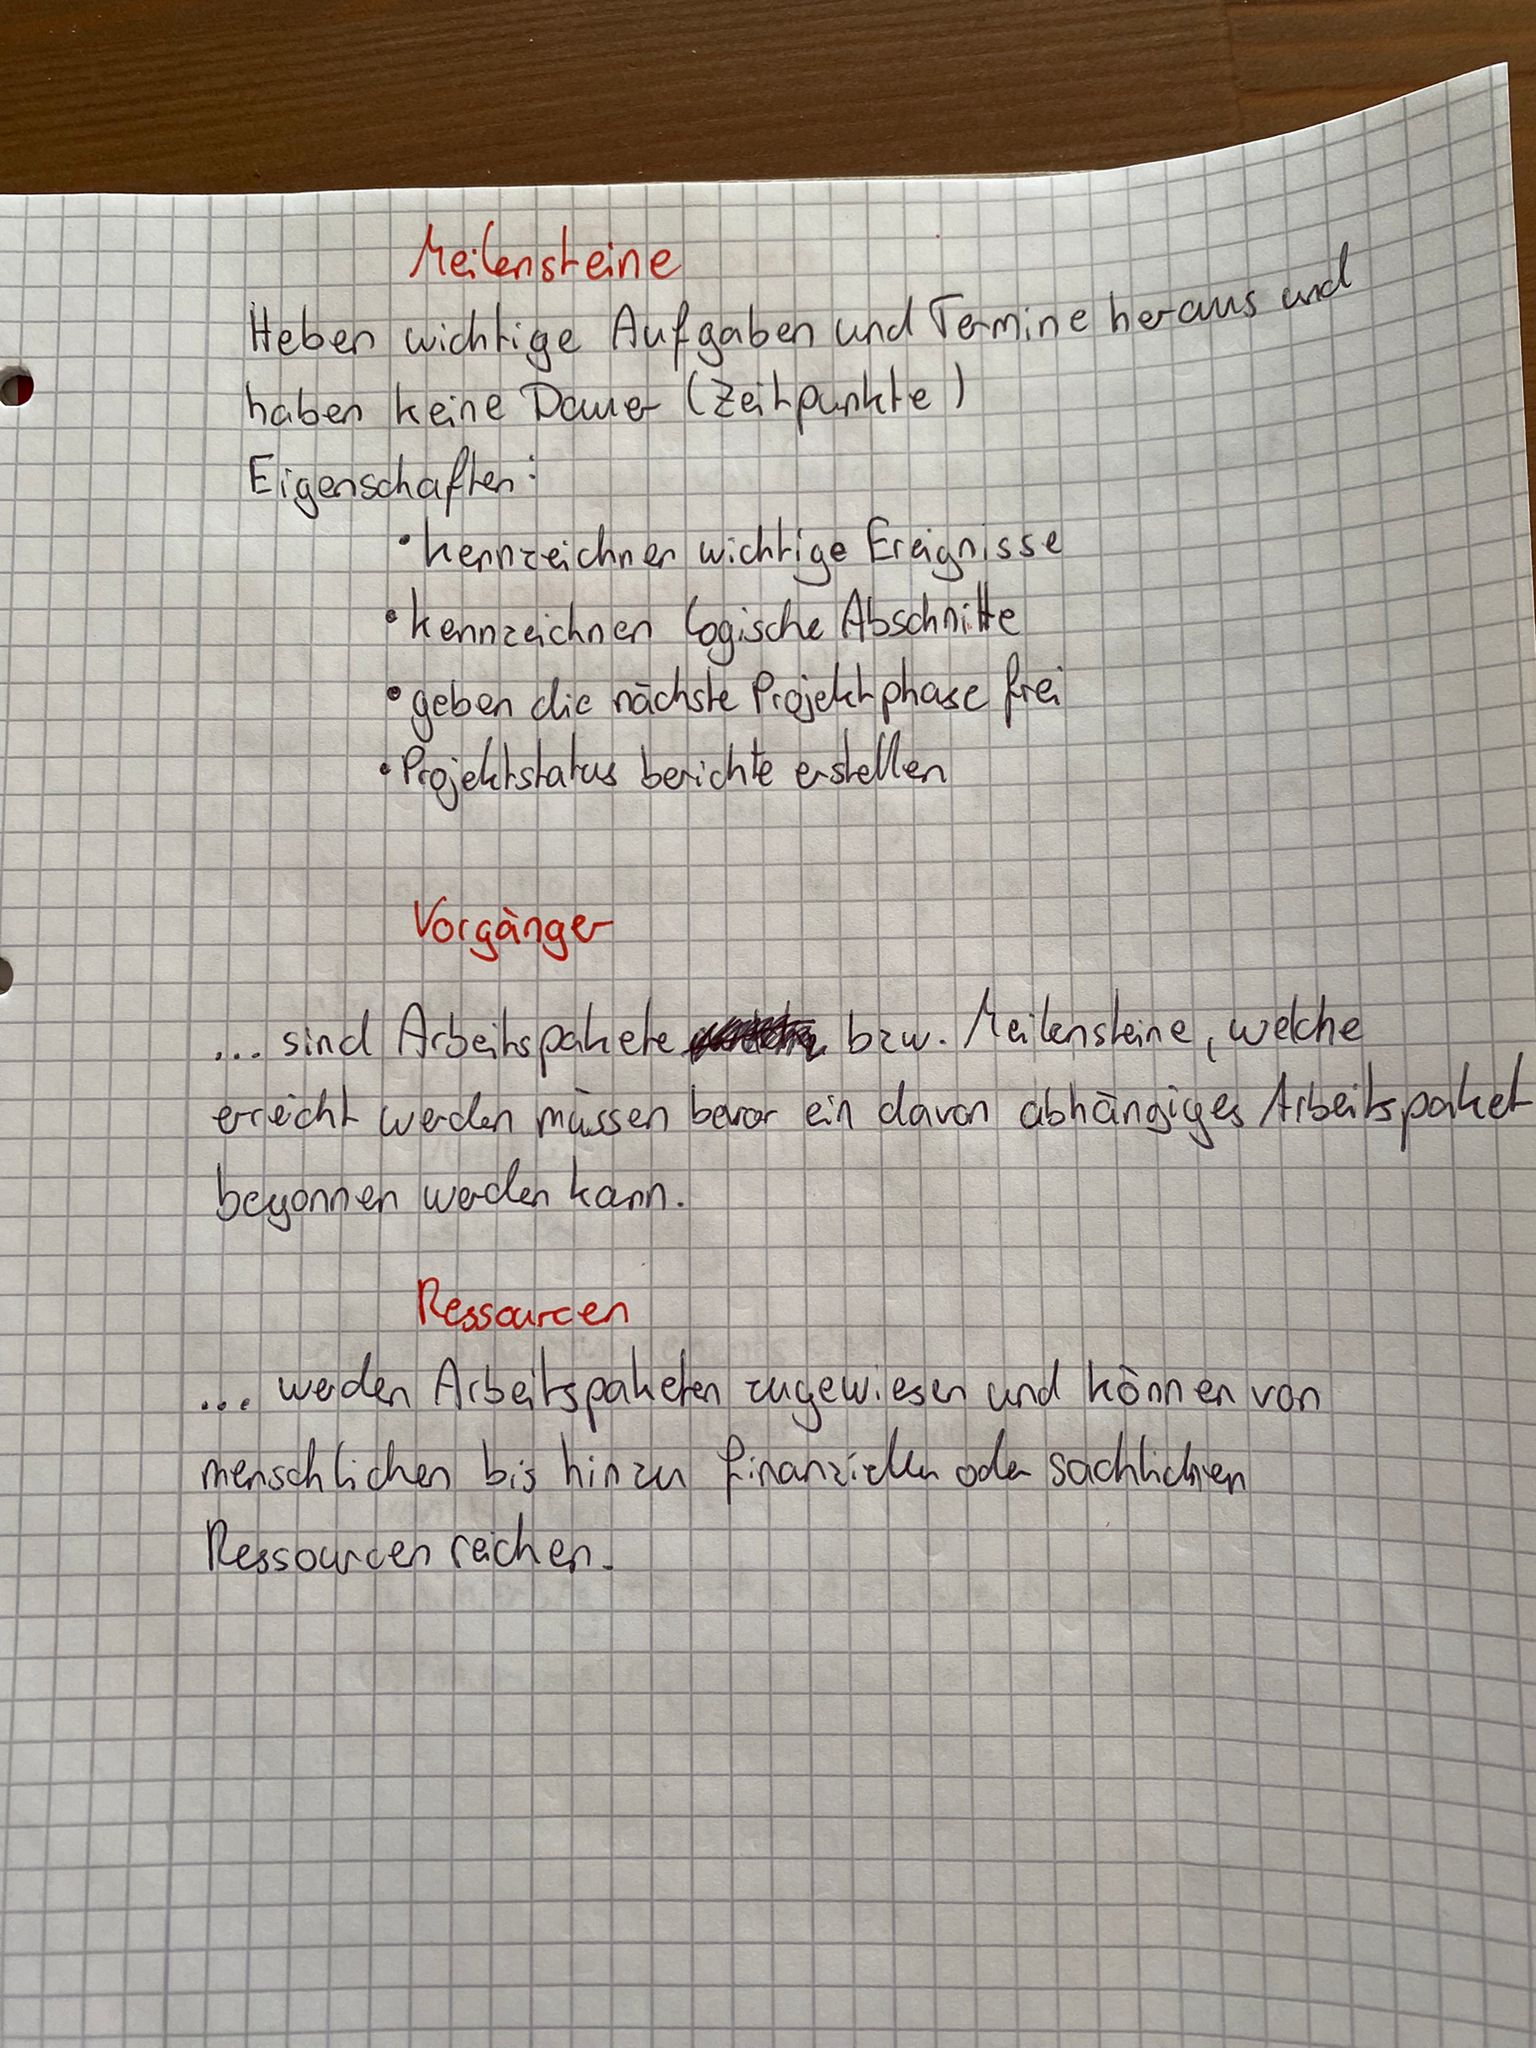 Meilensteine
Heben wichtige Aufgaben und Termine heraus und
haben keine Dauer (Zeitpunkte)
Eigenschaften:
• kennzeichnen wichtige Ereignisse
• kennzeichnen logische Abschnitte
• geben die nächste Projektphase frei
• Projektstatus berichte erstellen
Vorgänger
... sind Arbeitspakete bzw. Meilensteine, welche
erreicht werden müssen bevor ein davon abhängiges Arbeitspaket
begonnen werden kann.
Ressourcen
... werden Arbeitspaketen zugewiesen und können von
menschlichen bis hinzu finanziellen oder sachlichen
Ressourcen reichen.